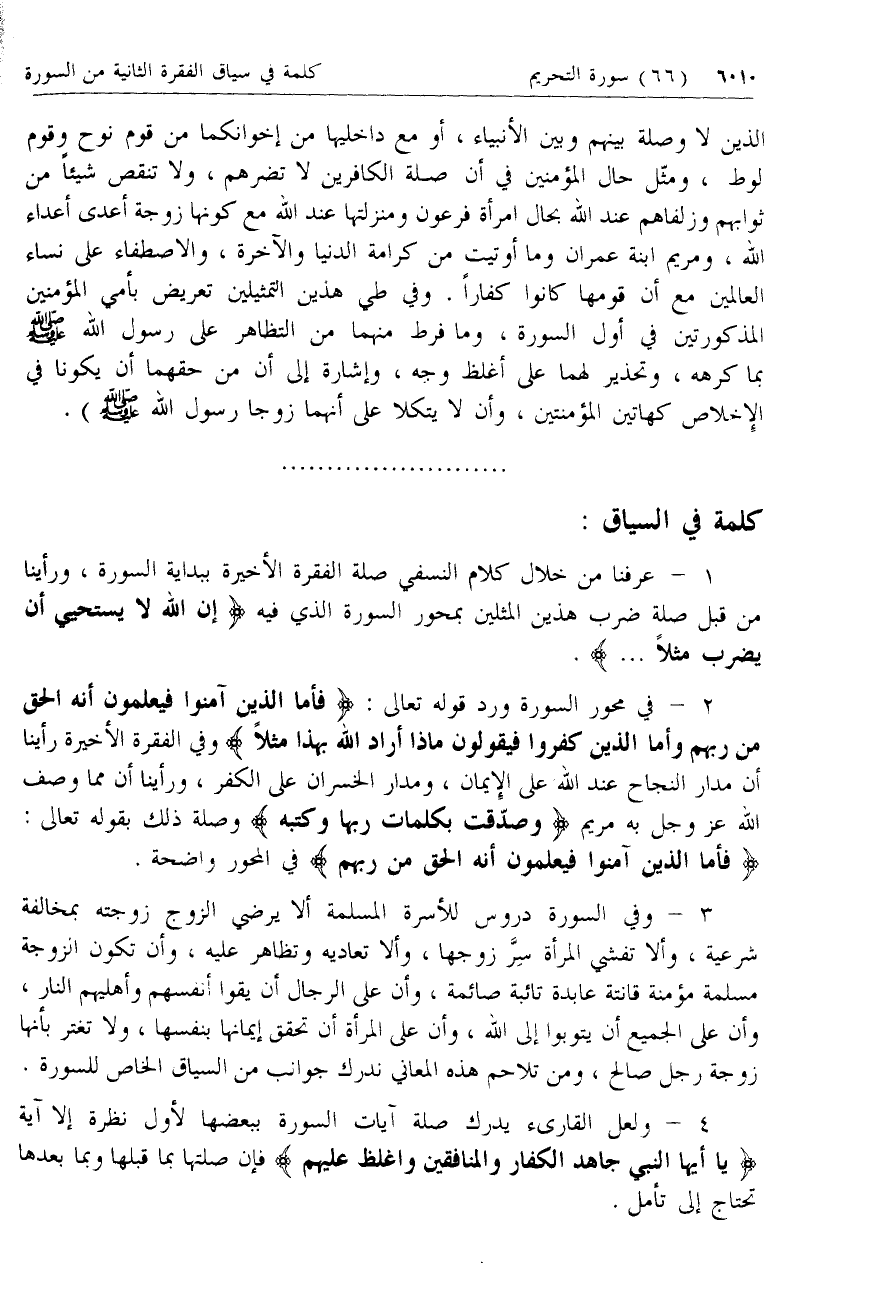 ٦٠١٠ (٦٦) سورة التحريم كلمة في سياق الفقرة الثانية من السورة
الذين لا وصلة بينهم وبين الأنبياء ، أو مع داخليها من إخوانكما من قوم نوح وقوم
لوط ، ومثّل حال المؤمنين في أن صلة الكافرين لا تضرهم ، ولا تنقص شيئاً من
ثوابهم وزلفاهم عند الله بحال امرأة فرعون ومنزلتها عند الله مع كونها زوجة أعدى أعداء
الله ، ومريم ابنة عمران وما أوتيت من كرامة الدنيا والآخرة ، والاصطفاء على نساء
العالمين مع أن قومها كانوا كفاراً . وفي طي هذين التمثيلين تعريض بأمي المؤمنين
المذكورتين في أول السورة ، وما فرط منهما من التظاهر على رسول الله ﷺ
بما كرهه ، وتحذير لهما على أغلظ وجه ، وإشارة إلى أن من حقهما أن يكونا في
الإِخلاص كهاتين المؤمنتين ، وأن لا يتكلا على أنهما زوجا رسول الله ﷺ ) .
.........................
كلمة في السياق :
١ - عرفنا من خلال كلام النسفي صلة الفقرة الأخيرة ببداية السورة ، ورأينا
من قبل صلة ضرب هذين المثلين بمحور السورة الذي فيه ﴿ إن الله لا يستحيي أن
يضرب مثلاً ... ﴾ .
٢ - في محور السورة ورد قوله تعالى : ﴿ فأما الذين آمنوا فيعلمون أنه الحق
من ربهم وأما الذين كفروا فيقولون ماذا أراد الله بهذا مثلاً ﴾ وفي الفقرة الأخيرة رأينا
أن مدار النجاح عند الله على الإِيمان ، ومدار الخسران على الكفر ، ورأينا أن مما وصف
الله عز وجل به مريم ﴿ وصدّقت بكلمات ربها وكتبه ﴾ وصلة ذلك بقوله تعالى :
﴿ فأما الذين آمنوا فيعلمون أنه الحق من ربهم ﴾ في المحور واضحة .
٣ - وفي السورة دروس للأسرة المسلمة ألا يرضي الزوج زوجته بمخالفة
شرعية ، وألا تفشي المرأة سِرَّ زوجها ، وألا تعاديه وتظاهر عليه ، وأن تكون الزوجة
مسلمة مؤمنة قانتة عابدة تائبة صائمة ، وأن على الرجال أن يقوا أنفسهم وأهليهم النار ،
وأن على الجميع أن يتوبوا إلى الله ، وأن على المرأة أن تحقق إيمانها بنفسها ، ولا تغتر بأنها
زوجة رجل صالح ، ومن تلاحم هذه المعاني ندرك جوانب من السياق الخاص للسورة .
٤ - ولعل القارىء يدرك صلة آيات السورة ببعضها لأول نظرة إلا آية
﴿ يا أيها النبي جاهد الكفار والمنافقين واغلظ عليهم ﴾ فإن صلتها بما قبلها وبما بعدها
تحتاج إلى تأمل .